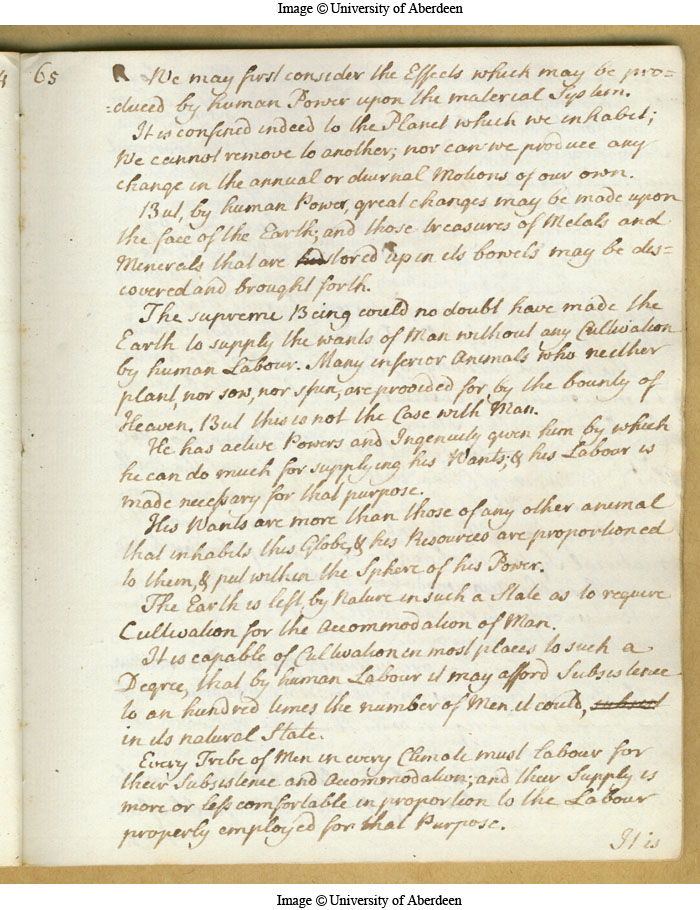 Image © University of Aberdeen
65
We may first consider the Effects which may be pro=
=duced by human Power upon the material System.
It is confined indeed to the Planet which we inhabit;
We cannot remove to another; nor can we produce any
change in the annual or diurnal Motions of our own.
But, by human Power, great changes may be made upon
the face of the Earth; and those treasures of Metals and
Minerals that are stored up in its bowels may be dis=
covered and brought forth.
The supreme Being could no doubt have made the
Earth to supply the wants of Man without any Cultivation
by human Labour. Many inferior Animals who neither
plant, nor sow, nor spin, are provided for by the bounty of
Heaven. But this is not the Case with Man.
He has active Powers and Ingenuity given him by which
he can do much for supplying his Wants; & his Labour is
made necessary for that purpose.
His Wants are more than those of any other animal
that inhabits this Globe, & his Resources are proportioned
to them, & put within the Sphere of his Power.
The Earth is left by Nature in such a State as to require
Cultivation for the Accommodation of Man.
It is capable of Cultivation in most places to such a
Degree, that by human Labour it may afford Subsistence
to an hundred times the number of Men it could, subsist
in its natural State.
Every Tribe of Men in every Climate must labour for
their Subsistence and Accomodation; and their Supply is
more or less comfortable in proportion to the Labour
properly employed for that Purpose.
It is
Image © University of Aberdeen